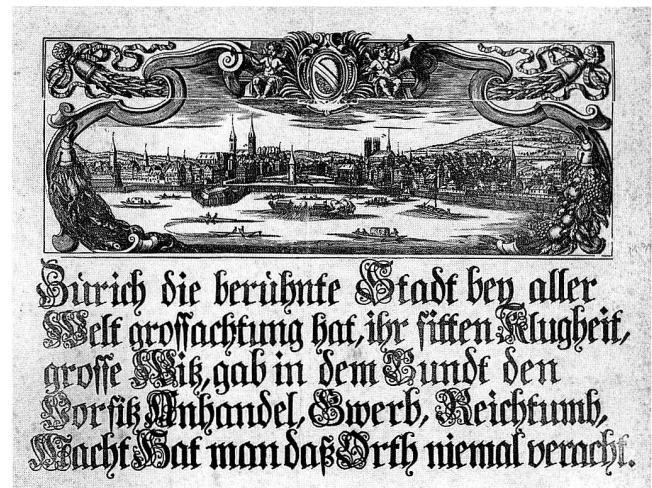 Zürich die berühnte Stadt bey aller
Welt grossachtung hat, ihr sitten Klugheit,
grosse Witz, gab in dem Bundt den
Vorsitz Anhandel, Gwerb, Reichtumb,
Macht Hat man daß Orth niemal veracht.